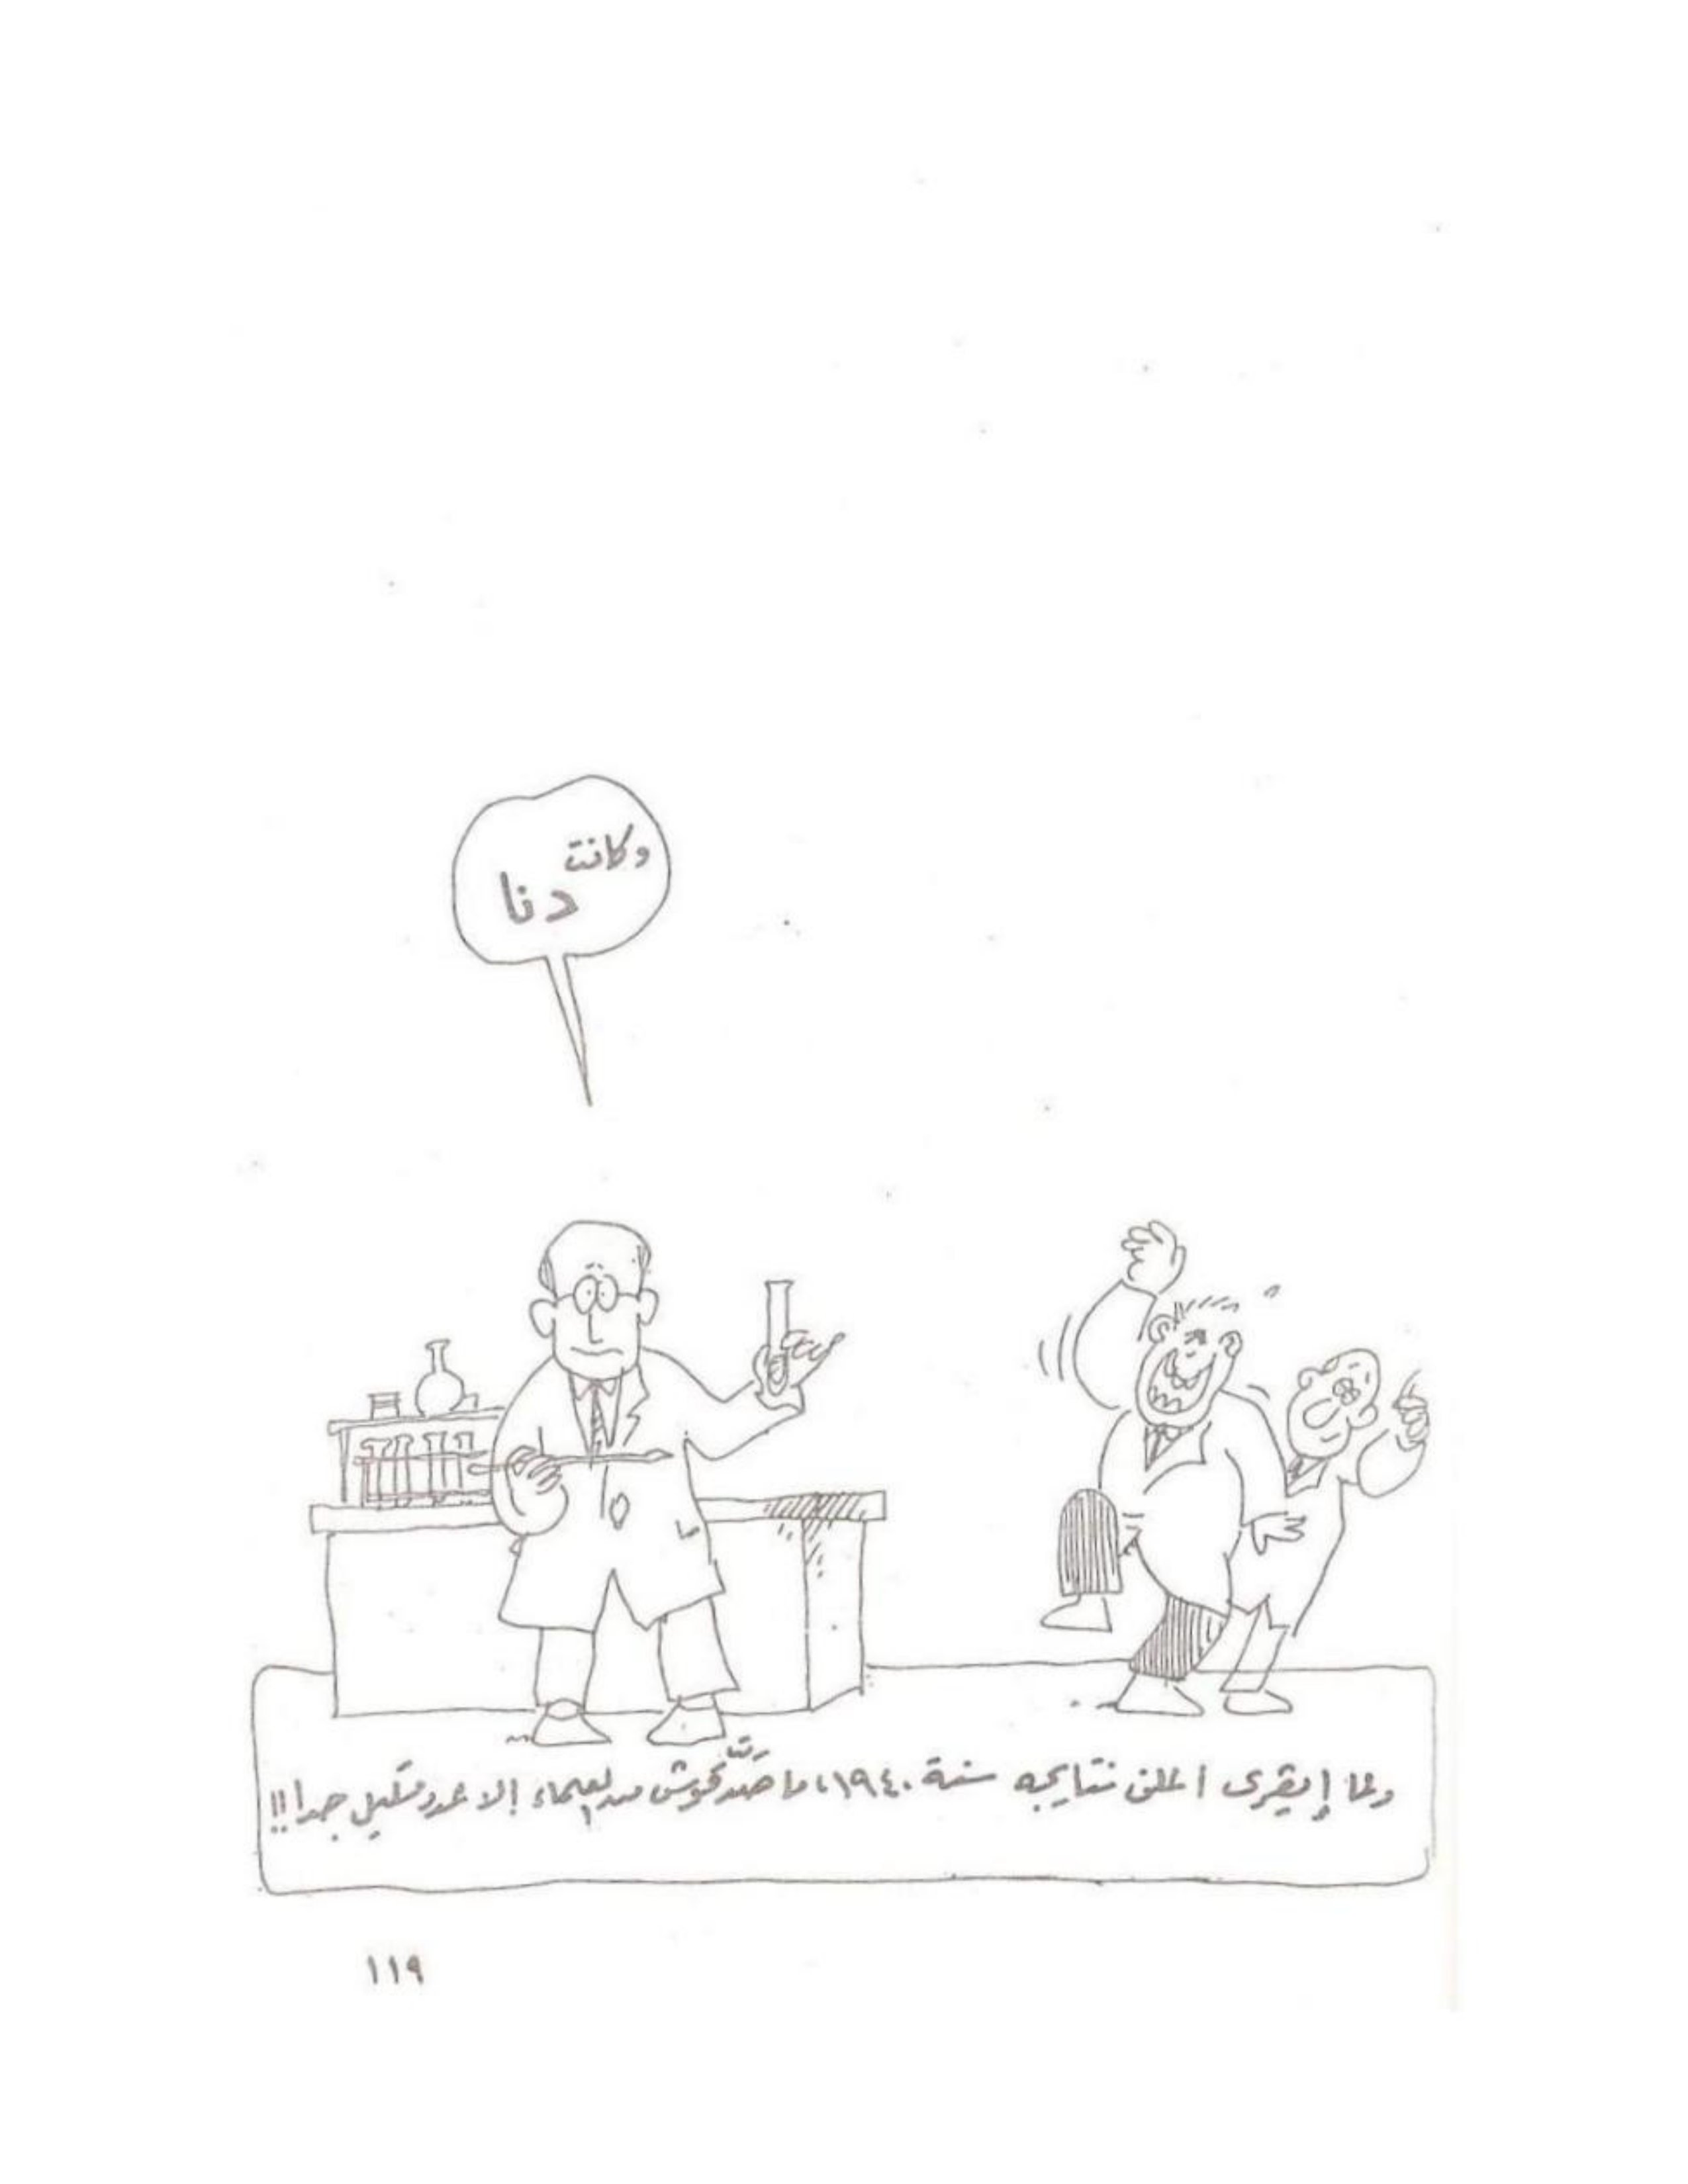 وكانت
دنا
ولما إيڤري اعلن نتايجه سنة ١٩٤٠، ما صدّقتوش من العلماء إلا عدد قليل جدا!!
١١٩